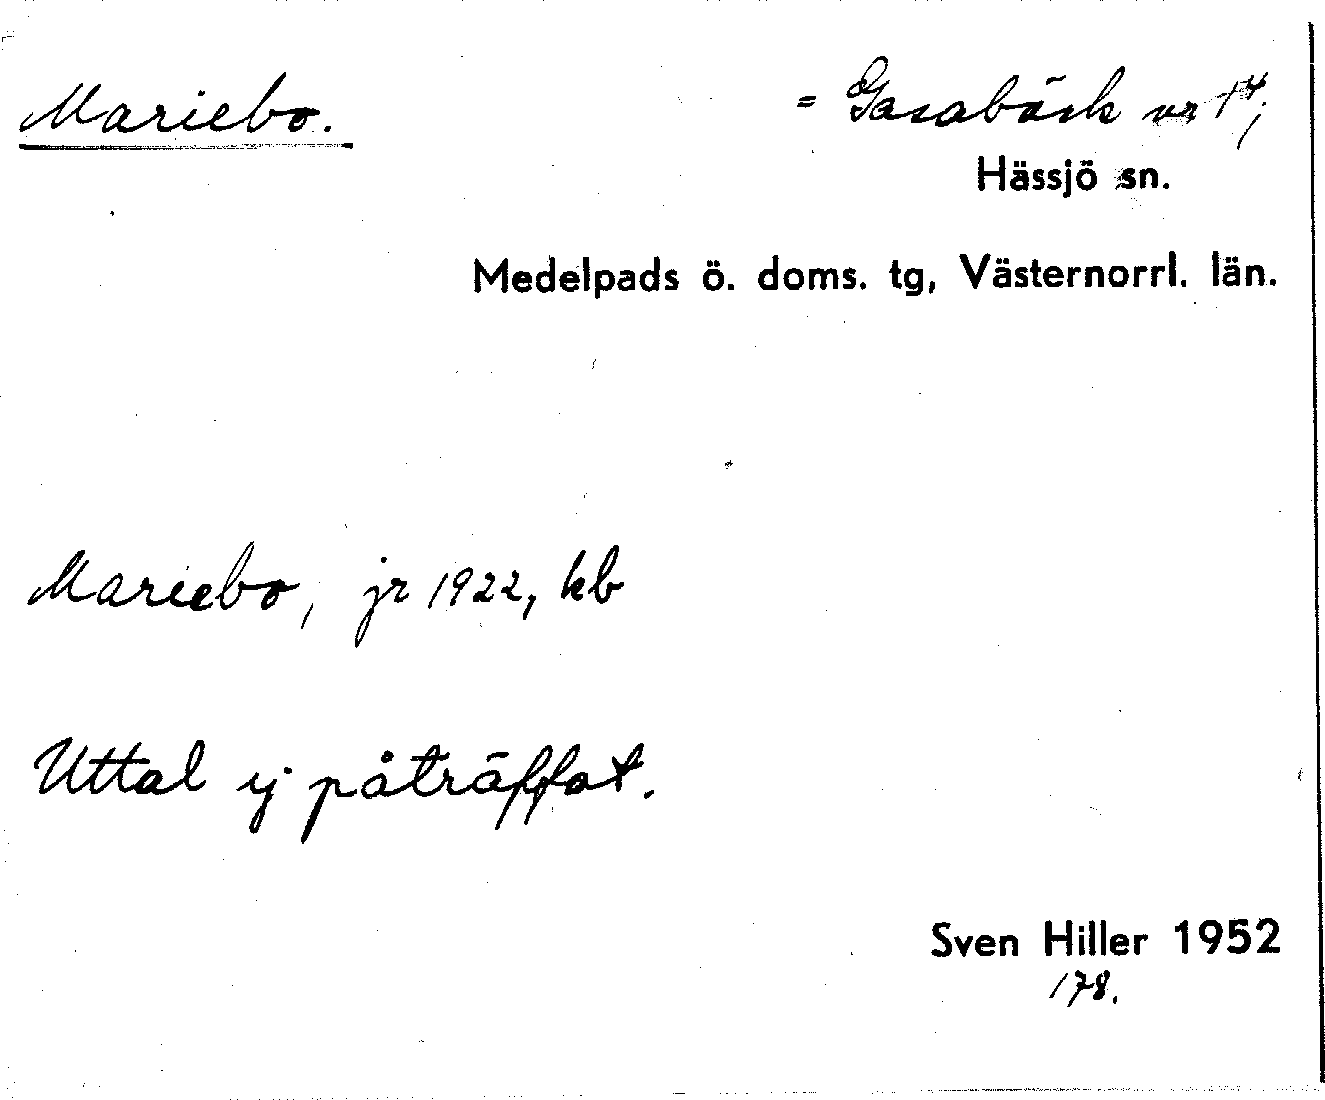 Mariebo. = Gasabäck nr 1⁴;
Hässjö sn.
Medelpads ö. doms. tg, Västernorrl. län.
Mariebo, jr 1922, kb
Uttal ej påträffat.
Sven Hiller 1952
178.